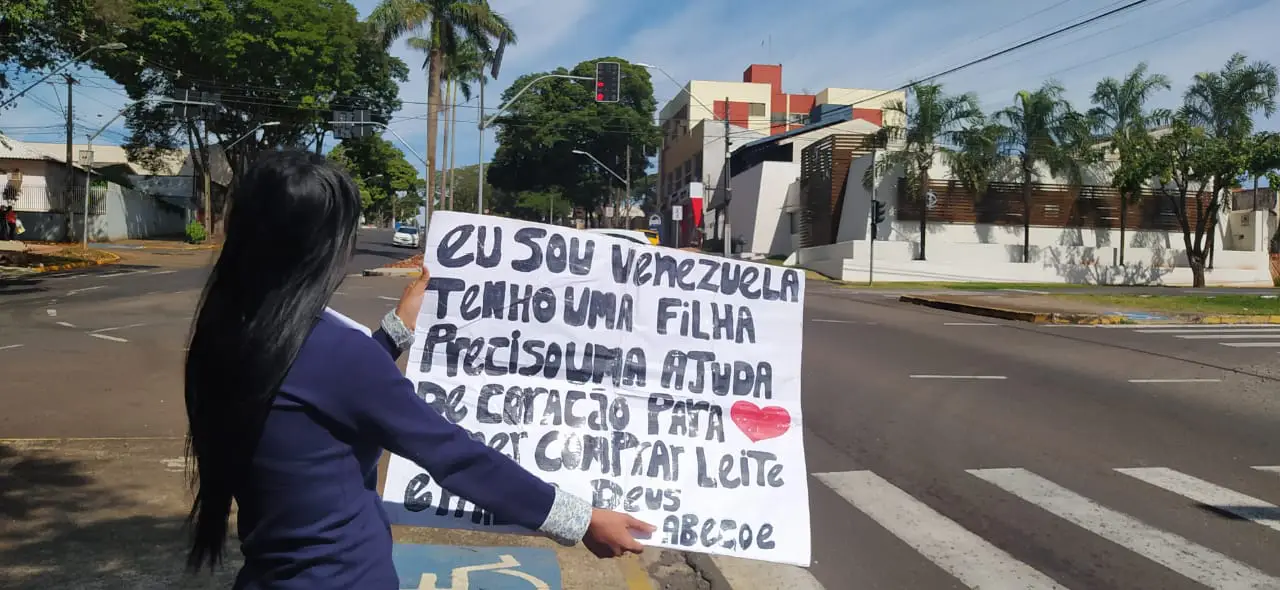 eu sou Venezuela
Tenho uma filha
Preciso uma ajuda
De coração para
comprar leite
Deus
Abeçoe